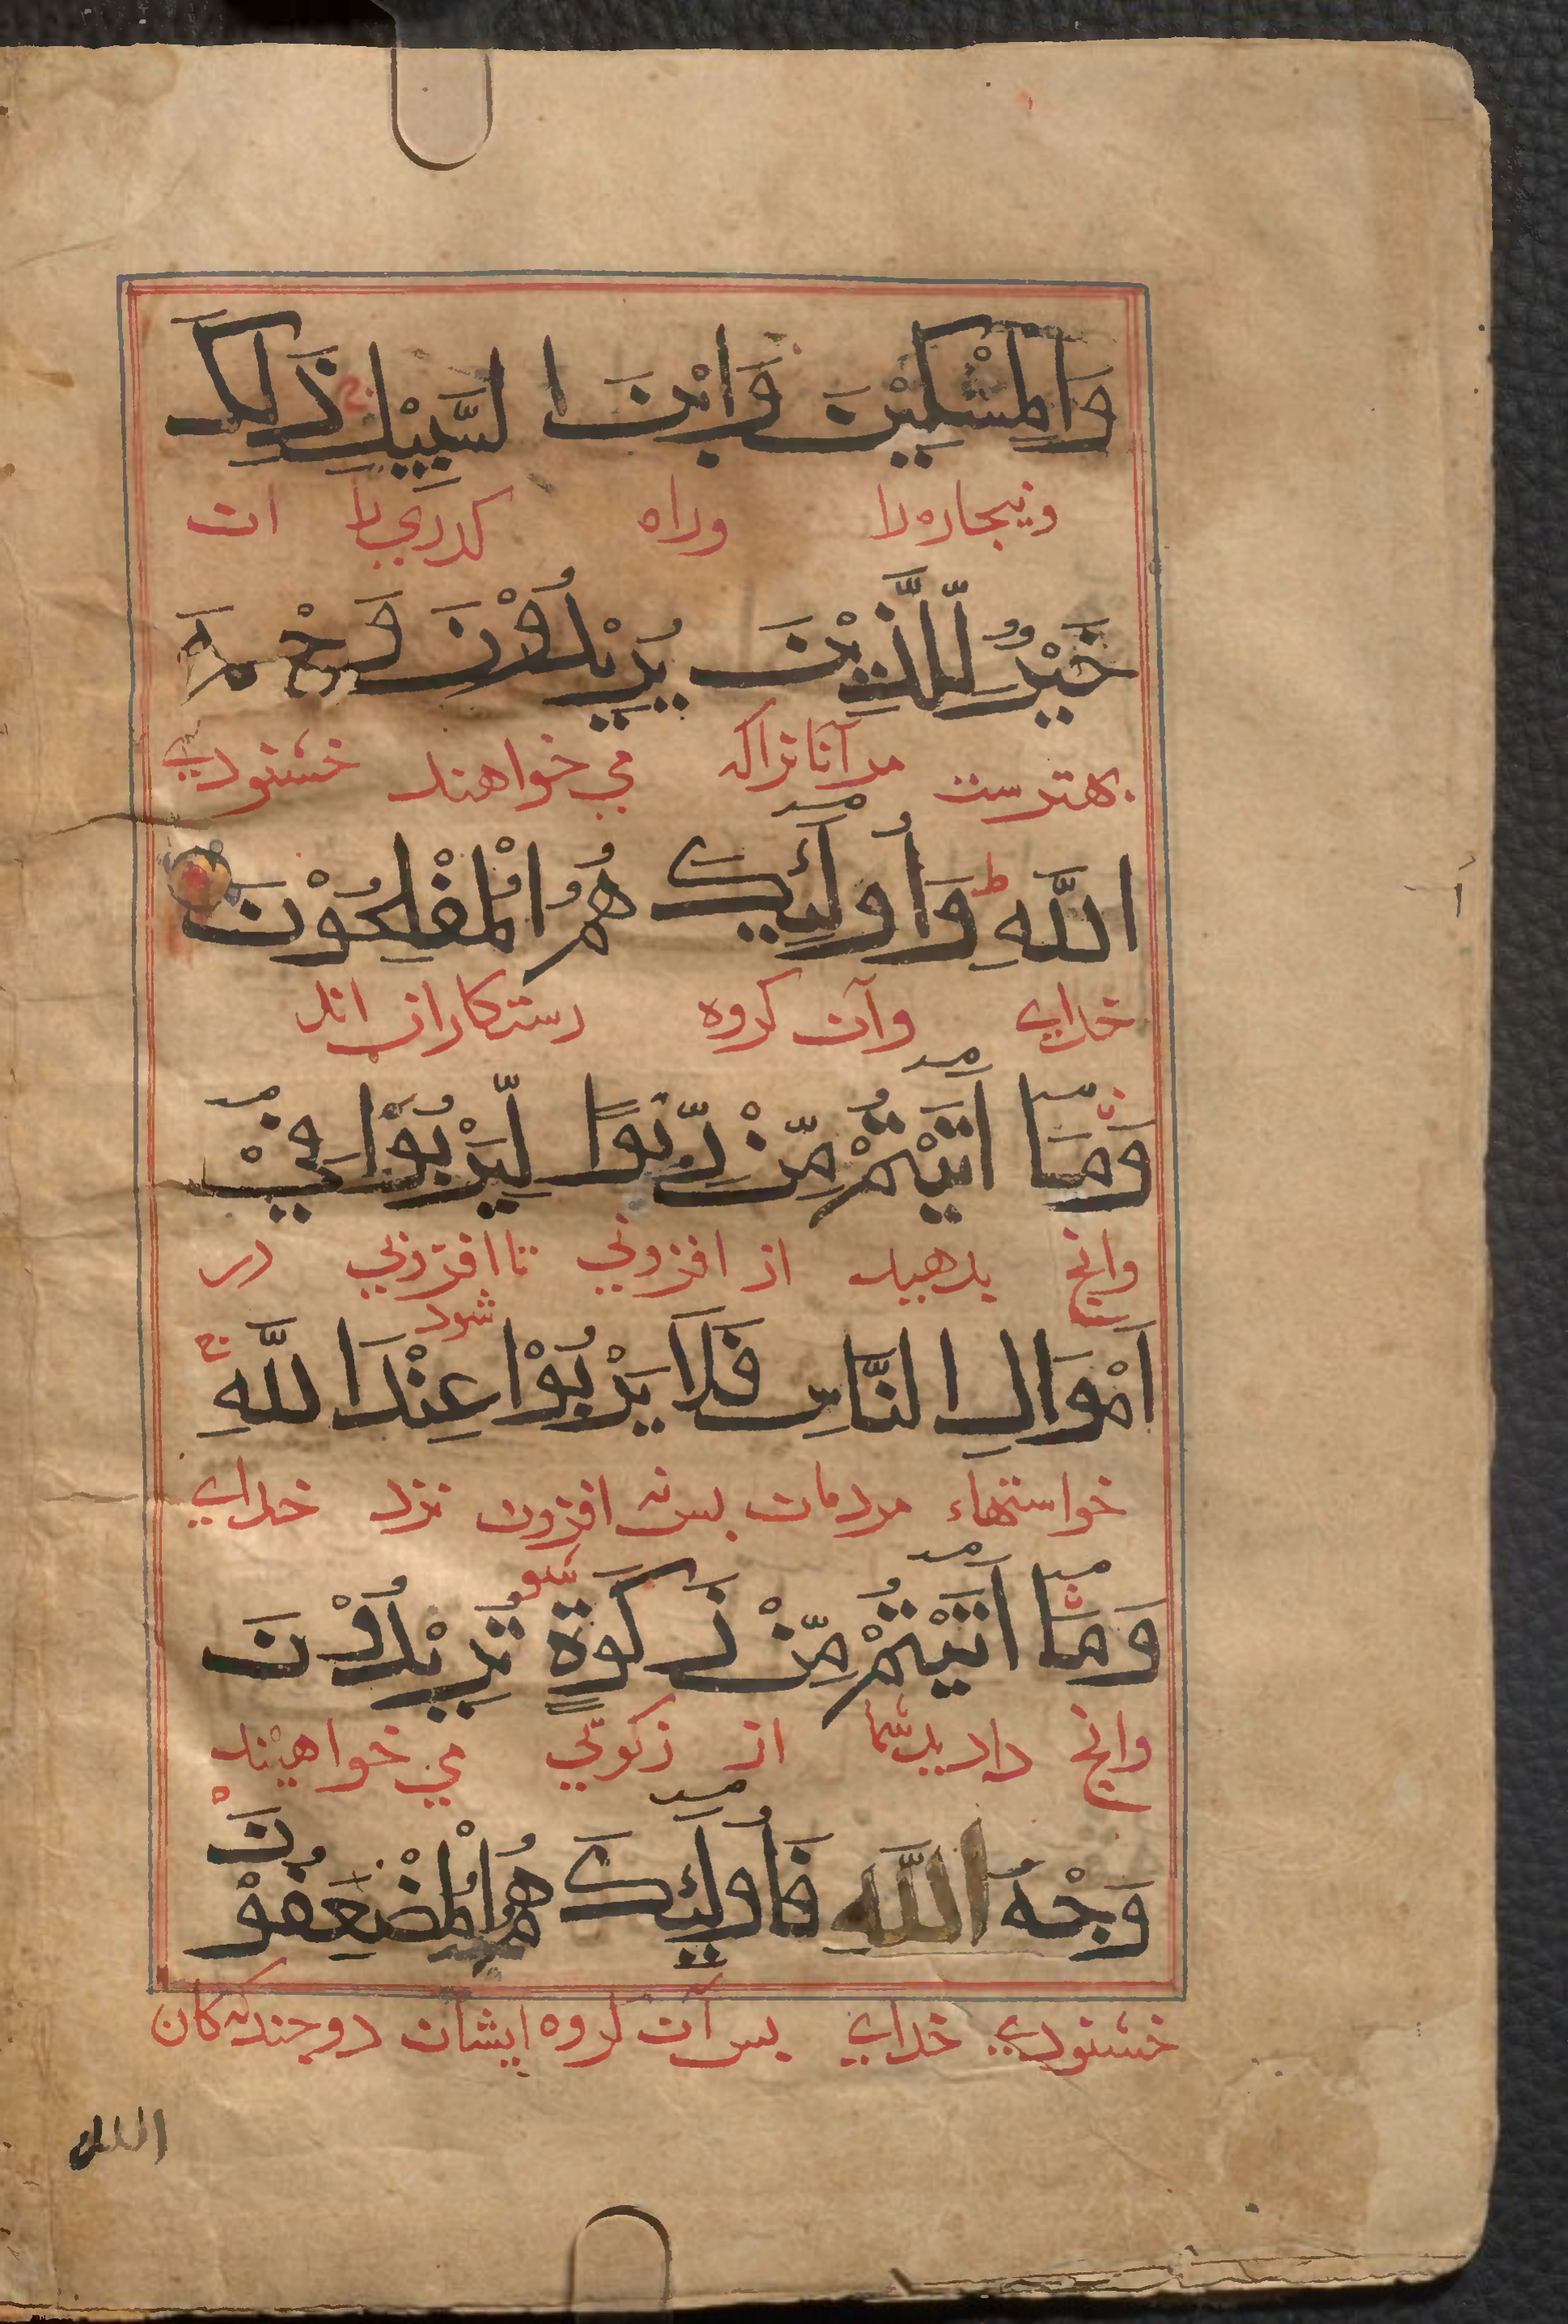 وَالْمِسْكِيْنَ وَابْنَ السَّبِيْلِ ذَلِكَ
وبیجاره را وراه کذری را ان
خَيْرٌ لِّلَّذِيْنَ يُرِيْدُوْنَ وَجْهَ
بهترست مر آنانراکه می خواهند خشنودی
اللَّهِ ط وَأُولَٓئِكَ هُمُ الْمُفْلِحُوْنَ
خدای وآن کروه رستکاران اند
وَمَآ اٰتَيْتُمْ مِّنْ رِّبَوًا لِّيَرْبُوَا۟ فِيْٓ
وانچ بدهید از افزونی تا افزونی در
شود
اَمْوَالِ النَّاسِ فَلَا يَرْبُوْا عِنْدَ اللَّهِ ج
خواستهاء مردمان بس نه افزون نزد خدای
شو
وَمَآ اٰتَيْتُمْ مِّنْ زَكَوةٍ تُرِيْدُوْنَ
وانچ دادید شما از زکوتی می خواهیند
وَجْهَ اللَّهِ فَأُولَٓئِكَ هُمُ الْمُضْعِفُوْنَ
خشنودی خدای بس آن کروه ایشان دوجندکه کان